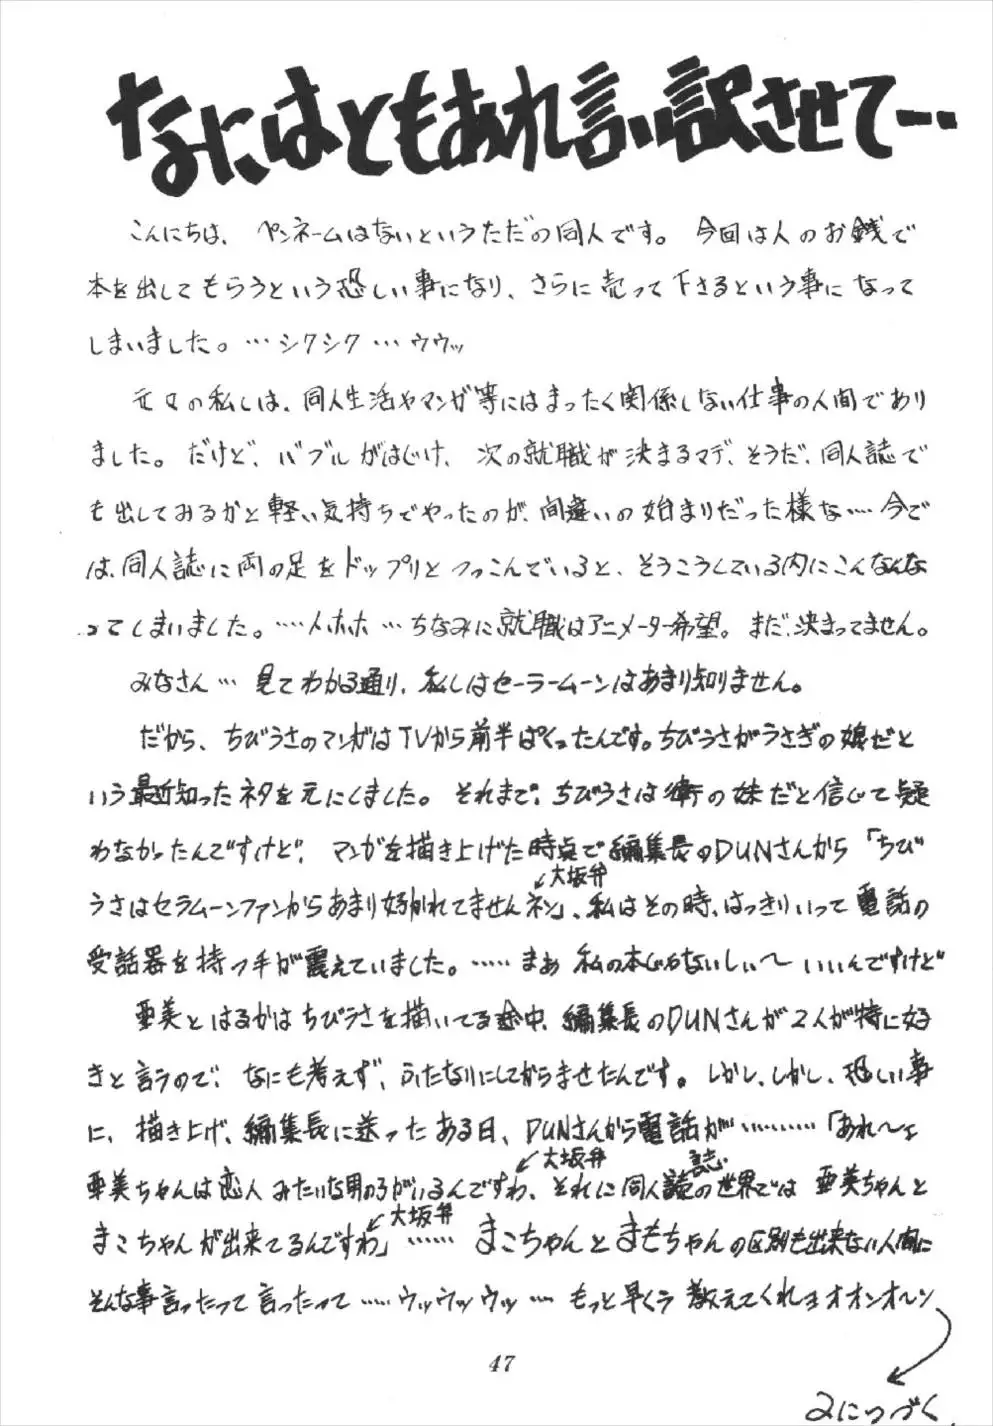 なにはともあれ言い訳させて…
こんにちは、ペンネームはないというただの同人です。今回は人のお銭で
本を出してもらうという恐しい事になり、さらに売って下さるという事になって
しまいました。…シクシク…ウウッ
元々の私しは、同人生活やマンガ等にはまったく関係しない仕事の人間であり
ました。だけど、バブルがはじけ、次の就職が決まるマデ、そうだ、同人誌で
も出してみるかと軽い気持ちでやったのが、間違いの始まりだった様な…今で
は、同人誌に両の足をドップリとつっこんでいると、そうこうしている内にこんなんな
ってしまいました。……ホホ…ちなみに就職はアニメーター希望。まだ、決まってません。
みなさん…見てわかる通り、私しはセーラームーンはあまり知りません。
だから、ちびうさのマンガはTVから前半ぱくったんです。ちびうさがうさぎの娘だと
いう最近知ったネタを元にしました。それまで、ちびうさは衛の妹だと信じて疑
わなかったんですけど、マンガを描き上げた時点で編集長のDUNさんから「ちび
大坂弁
うさはセラムーンファンからあまり好かれてませんネン」、私はその時、はっきりいって電話の
受話器を持つ手が震えていました。……まあ私の本じゃないしぃ〜いいんですけど
亜美とはるかはちびうさを描いてる途中、編集長のDUNさんが2人が特に好
きと言うので、なにも考えず、ふたなりにしてからませたんです。しかし、しかし、恐しい事
に、描き上げ、編集長に送ったある日、DUNさんから電話が…………「あれ〜ェ
大坂弁 誌
亜美ちゃんは恋人みたいな男の子がいるんですわ、それに同人の世界では亜美ちゃんと
大坂弁
まこちゃんが出来てるんですわ」……まこちゃんとまもちゃんの区別も出来ない人間に
そんな事言ったって言ったって……ウッウッウッ…もっと早くう教えてくれョオオンオ〜ン
47
2につづく